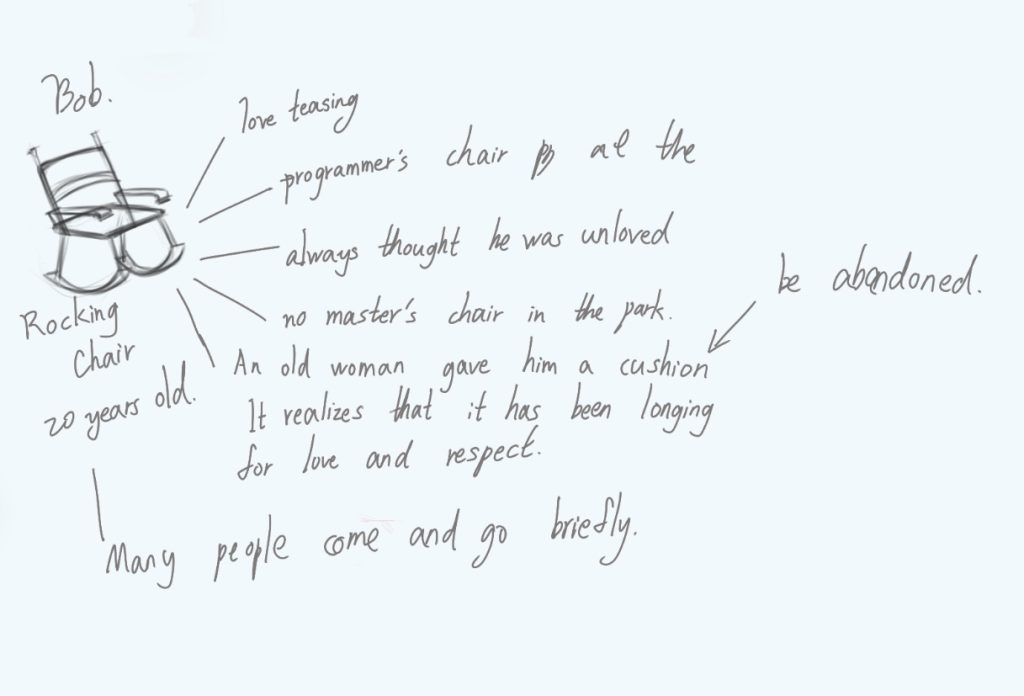 Bob.
love teasing
programmer's chair at the
always thought he was unloved
be abandoned.
no master's chair in the park.
Rocking
Chair
20 years old.
An old woman gave him a cushion
It realizes that it has been longing
for love and respect.
Many people come and go briefly.